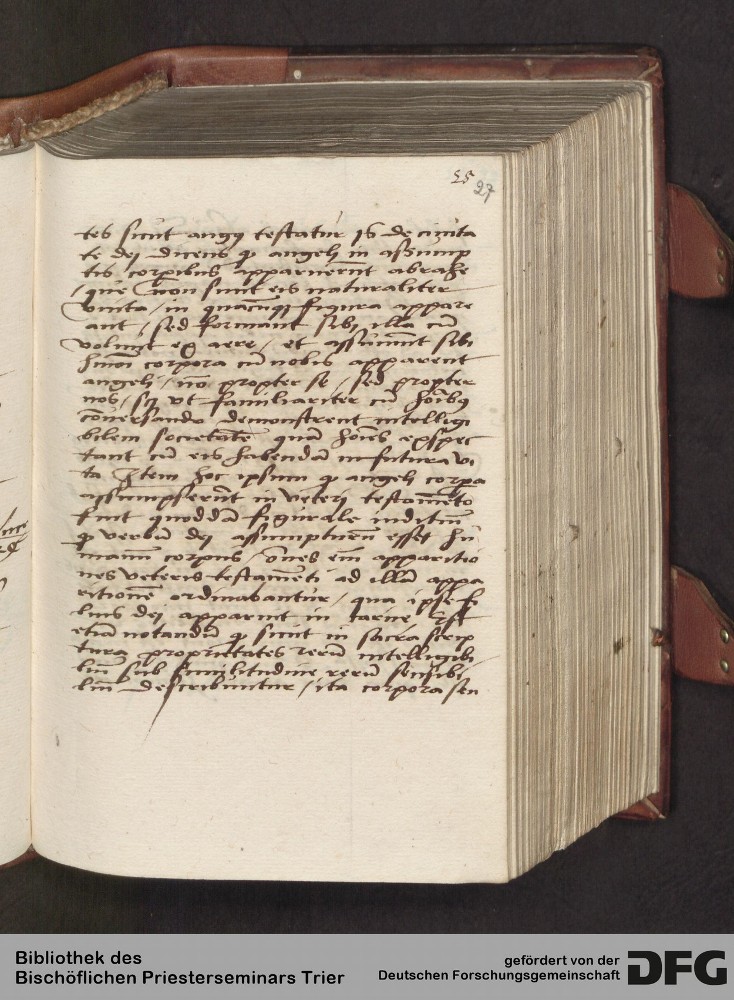 25
27
tes sicut augꝯ testatur 16 de ciuita
te dei dicens ꝙ angeli in assump
tis corpibus apparuerūt abrahe
/ que non sunt eis naturaliter
vnita / in quacūqꝫ figura appare
ant / sed formant sibi illa cū
volunt ex aere / et assumūt sibi
corpora cū nobis apparent
angeli / nō propter se / sed propter
nos / sꝫ vt familiariter cū hoībꝯ
cōuersando demonstrent intelligi
bilem societatē quā hoīes exspec
tant cū eis habendā in futura vi
ta Item hoc ipsum ꝙ angeli corpa
assumpserūt in veteri testamēto
fuit quoddā figurale indiciū
ꝙ verbū dei assumpturū esset hu
manū corpus / oēs eīm apparitio
nes veteris testamēti ad illā appa
ritionē ordinabantur / qua ipse fi
lius dei apparuit in carne Est
etiā notandū ꝙ sicut in sacra scrip
tura proprietates rerū intelligibi
liū sub similitudine rerū sensibi
liū describuntur / ita corpora sen
Bibliothek des
Bischöflichen Priesterseminars Trier
gefördert von der
Deutschen Forschungsgemeinschaft
DFG